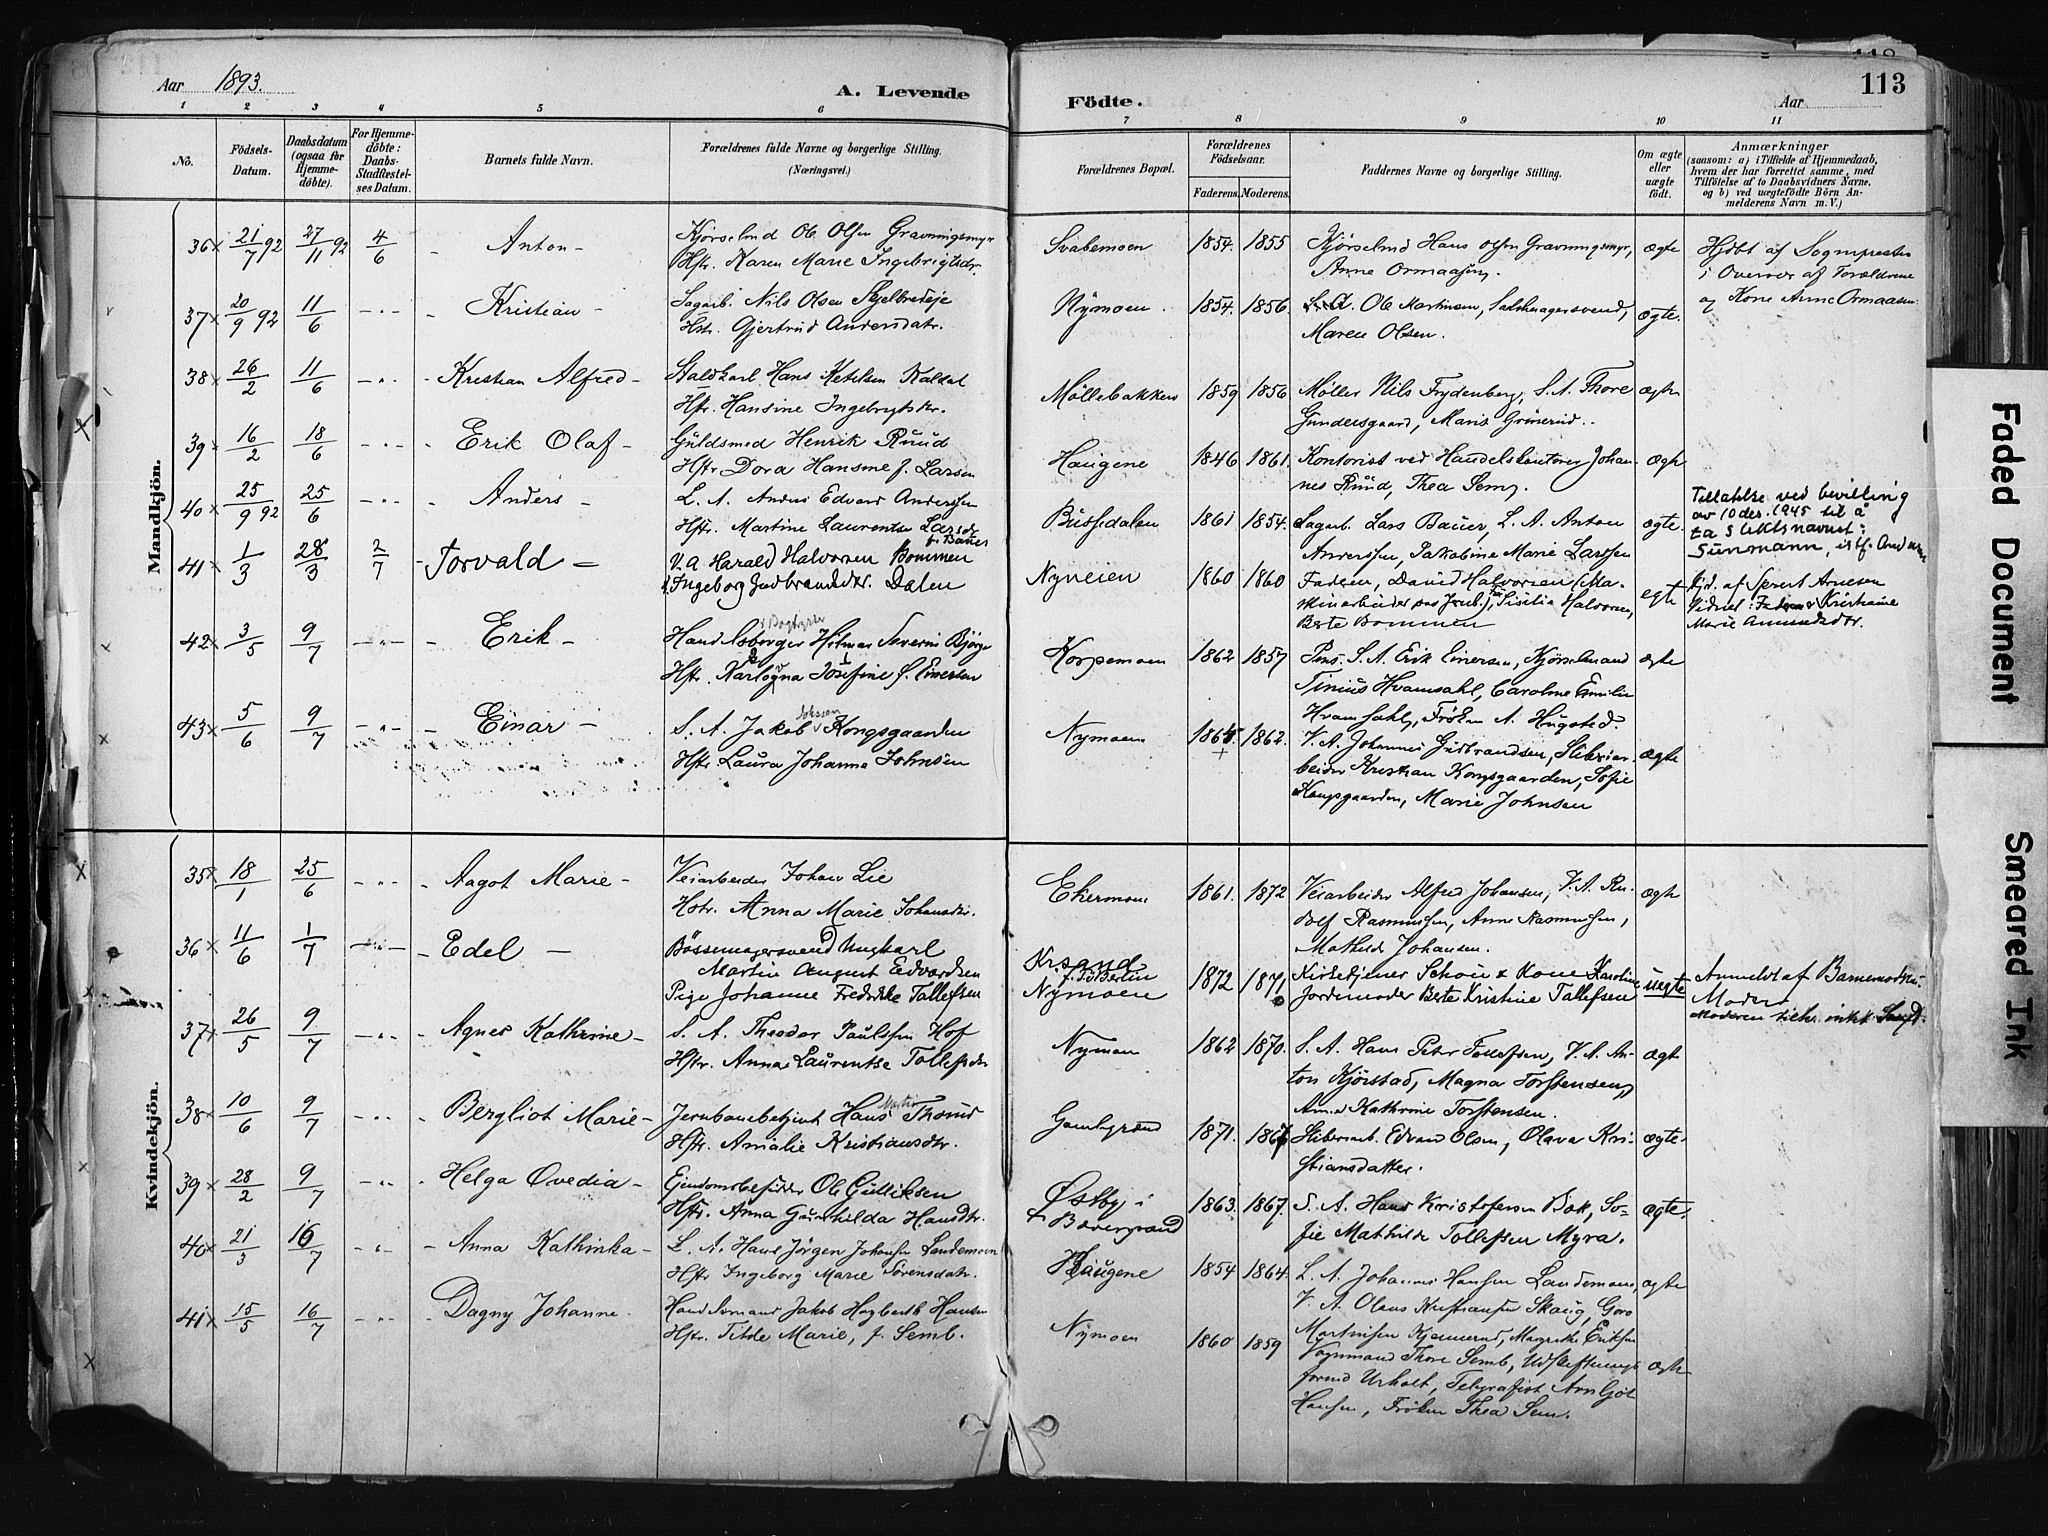 Aar 1893. A. Levende
Födte. Aar 113
1 2 3 4 5 6 7 8 9 10 11
No. Födsels-Datum. Daabsdatum (ogsaa for Hjemmedöbte). For Hjemmedöbte: Daabs-Stadfæstelses Datum. Barnets fulde Navn. Forældrenes fulde Navne og borgerlige Stilling. (Næringsvei.)
Forældrenes Bopæl. Forældrenes Födselsaar. Faderens. Moderens. Faddernes Navne og borgerlige Stilling. Om ægte eller uægte födt. Anmærkninger (saasom: a) i Tilfælde af Hjemmedaab, hvem der har forrettet samme, med Tilföielse af to Daabsvidners Navne, og b) ved uægtefödte Börn Anmelderens Navn m. V.)
Mandkjön.
36 21/7 92 27/11 92 4/6 Anton Kjørselmd Ole Olsen Gravningsmyr
Hstr. Karen Marie Ingebrigtsdr.
Svabemoen 1854. 1855 Kjørselmd Hans Olsen Gravningsmyr, ægte
Anne Ormaasen.
Hjdbt af Sognpresten
i Overvær af Forældrene
og Kone Anne Ormaasen.
37 20/9 92 11/6 Kristian Sagarb. Nils Olsen Skjelbredeje
Hstr. Gjertrud Andersdatr.
Nymoen. 1854. 1856. Ole Martinsen, Maren Olsen. ægte.
38 26/2 11/6 Kristian Alfred Staldkarl Hans Ketilsen Kaldal
Hstr. Hansine Ingebrigtsdr.
Møllebakken 1859 1856 Møller Nils Frydenberg, S. A. Thore ægte
Gundersgaard,
39 16/2 18/6 Erik Olaf Guldsmed Henrik Ruud
Hstr Dora Hansine f. Larsen
Haugene 1846 1861. Kontorist ved Handelskontoret Johannes Ruud, Thea Sem. ægte
40 25/9 92 25/6 Anders L. A. Anders Edvard Anderssen
Hstr. Martine Laurentse Larsdr
f. Bauer
Bussedalen 1861 1854. Sagarb. Lars Bauer, L. A. Anton ægte.
Anderssen, Jakobine Marie Larssen
Tillatelse ved bevilling
av 10 des. 1945 til å
ta slektsnavnet:
Sunmann, istf. Andersen
41 1/3 28/3 2/7 Torvald V. A Harald Halvorsen Bommen
Ingeborg Gudbrandsdtr. Dalen
Nyveien 1860 1860 Faderen, David Halvorsen (Maskinarbeider paa Jernb.), Sisilia Halvorsen, egte
Berte Bommen
Hjd. af Syvert Arnesen
Vidner: Faderen & Kristiane
Marie Amundsdtr.
42 3/5 9/7 Erik Handelsborger Hilmar Severin Bjørge
Hstr. Karlogna Josefine f. Einersen
Korpemoen 1862 1857 Pens. S. A. Erik Einersen, Kjørselmand ægte
Tinius Hvamsahl, Caroline Emilie
Hvamsahl, Frøken A. Hugsted.
43 5/6 9/7 Einar S. A. Jakob Kongsgaarden
Hstr Laura Johanna Johnsen
Nymoen 1864 1862. V. A. Johannes Gudbrandsen, Sliberiarbeider Kristian Kongsgaarden, Sofie ægte
Kongsgaarden, Marie Johnsen
Kvindekjön.
35 18/1 25/6 Aagot Marie Veiarbeider Johan Lie
Hstr. Anna Marie Johansdtr.
Ekermoen 1861. 1872 Veiarbeider Alfred Johansen, V. A. Rudolf Rasmussen, Anne Rasmussen, ægte
Mathilde Johansen.
36 11/6 1/7 Edel Bössemagersvend Ungkarl
Martin August Edvardsen
Pige Johanne Fredrikke Tollefsen
Krsand
Nymoen 1872 1871 Kirketjener Schou & Kone Karoline uegte
Jordemoder Berte Kristine Tollefsen
Anmeldt af Barnemoderens
Moder
37 26/5 9/7 Agnes Kathrine S. A. Theodor Paulssen Hof
Hstr. Anna Laurentse Tollefsdtr
Nymoen 1862 1870. S. A. Hans Peter Tollefsen, V. A. Anton Kjørstad, Magna Torstensen, ægte
Anna Kathrine Torstensen.
38 10/6 9/7 Bergliot Marie Jernbanebetjent Hans Thorud
Hstr. Amalie Kristiansdtr.
1871. Sliberarb. Edvard Olsen, Olava Kristiansdatter. ægte.
39 28/2 9/7 Helga Ovedia Eiendomsbesidder Ole Gulliksen
Hstr. Anna Gunhilda Hansdtr.
Østby i
Bævergrænd 1863. 1867. S. A. Hans Kristofersen Bak, Sofie Mathilde Tollefsen Myra. ægte.
40 21/3 16/7 Anna Kathinka L. A. Hans Jörgen Johansen Landemoen
Hstr Ingeborg Marie Sörensdatr.
Haugene 1854 1864. L. A. Johannes Hansen Landemoen, ægte
V. A. Olaus Kristiansen Skaug, Goro
Martinsen Kjennerud, Margrethe Eriksen
41 15/5 16/7 Dagny Johanne Handelsmand Jakob Hagbarth Hansen
Hstr. Tilde Marie, f. Semb.
Nymoen 1860 1859 Vognmand Thore Semb, Udskiftningsformd Urholt, Telegrafist Arnljot ægte
Hansen, Frøken Thea Sem.
Faded Document
Smeared Ink